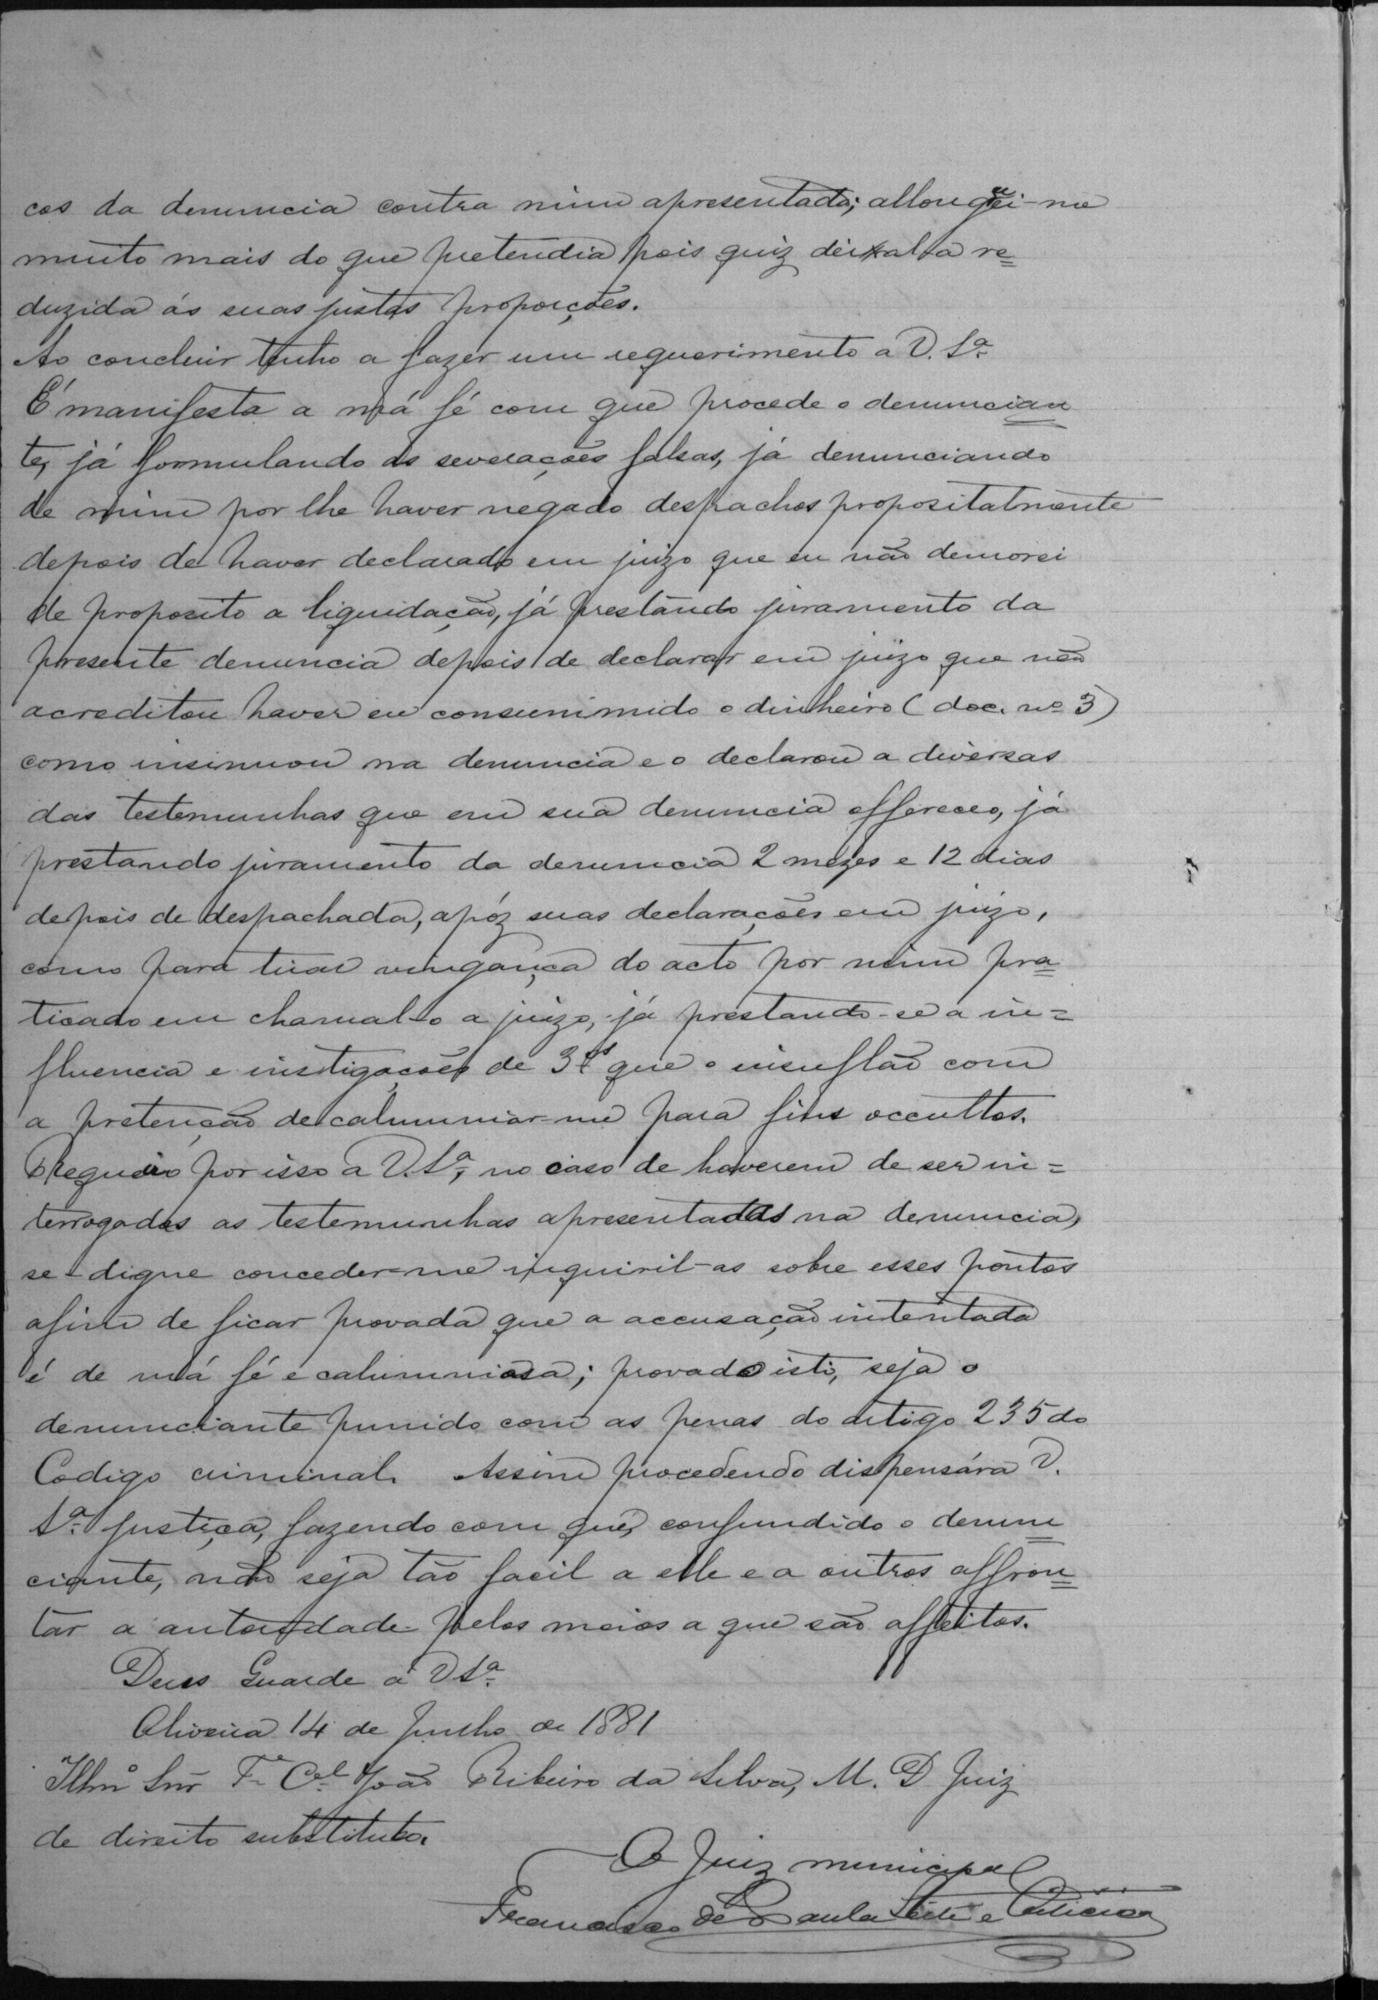 cos da denuncia contra mim apresentada; allonguei-me
muito mais do que pretendia pois quiz deixal-a re=
duzida ás suas justas proporções.
Ao concluir tenho a fazer um requerimento a V. Sª.
É manifesta a má fé com que procede o denuncian
te, já formulando as severações falsas, já denunciando
de mim por lhe haver negado despachos propositalmente
depois de haver declarado em juizo que eu não demorei
de proposito a liquidação, já prestando juramento da
presente denuncia depois de declarar em juizo que não
acreditou haver eu consummido o dinheiro (doc. nº 3)
como insinuou na denuncia e o declarou a diversas
das testemunhas que em sua denuncia offereceo, já
prestando juramento da denuncia 2 mezes e 12 dias
depois de despachada, apóz suas declarações em juizo,
como para tirar vingança do acto por mim pra=
ticado em chamal-o a juizo, já prestando-se a in=
fluencia e instigações de 3ºs que o insuflão com
a pretenção de calumniar-me para fins occultos.
Requeiro por isso a V. Sª, no caso de haverem de ser in=
terrogadas as testemunhas apresentadas na denuncia,
se-digne conceder-me inquiril-as sobre esses pontos
afim de ficar provada que a accusação intentada
é de má fé e calumniosa; provado isto, seja o
denunciante punido com as penas do artigo 235 do
Codigo criminal. Assim procedendo dispensára V.
Sª. justiça, fazendo com que, confundido o denun
ciante, não seja tão facil a elle e a outros affron=
tar a autoridade pelos meios a que são affeitos.
Deus Guarde a V Sª.
Oliveira 14 de Junho de 1881
Illmº Snr Te Cel João Ribeiro da Silva, M. D Juiz
de direito substituto.
O Juiz municipal
Francisco de Paula Leite e